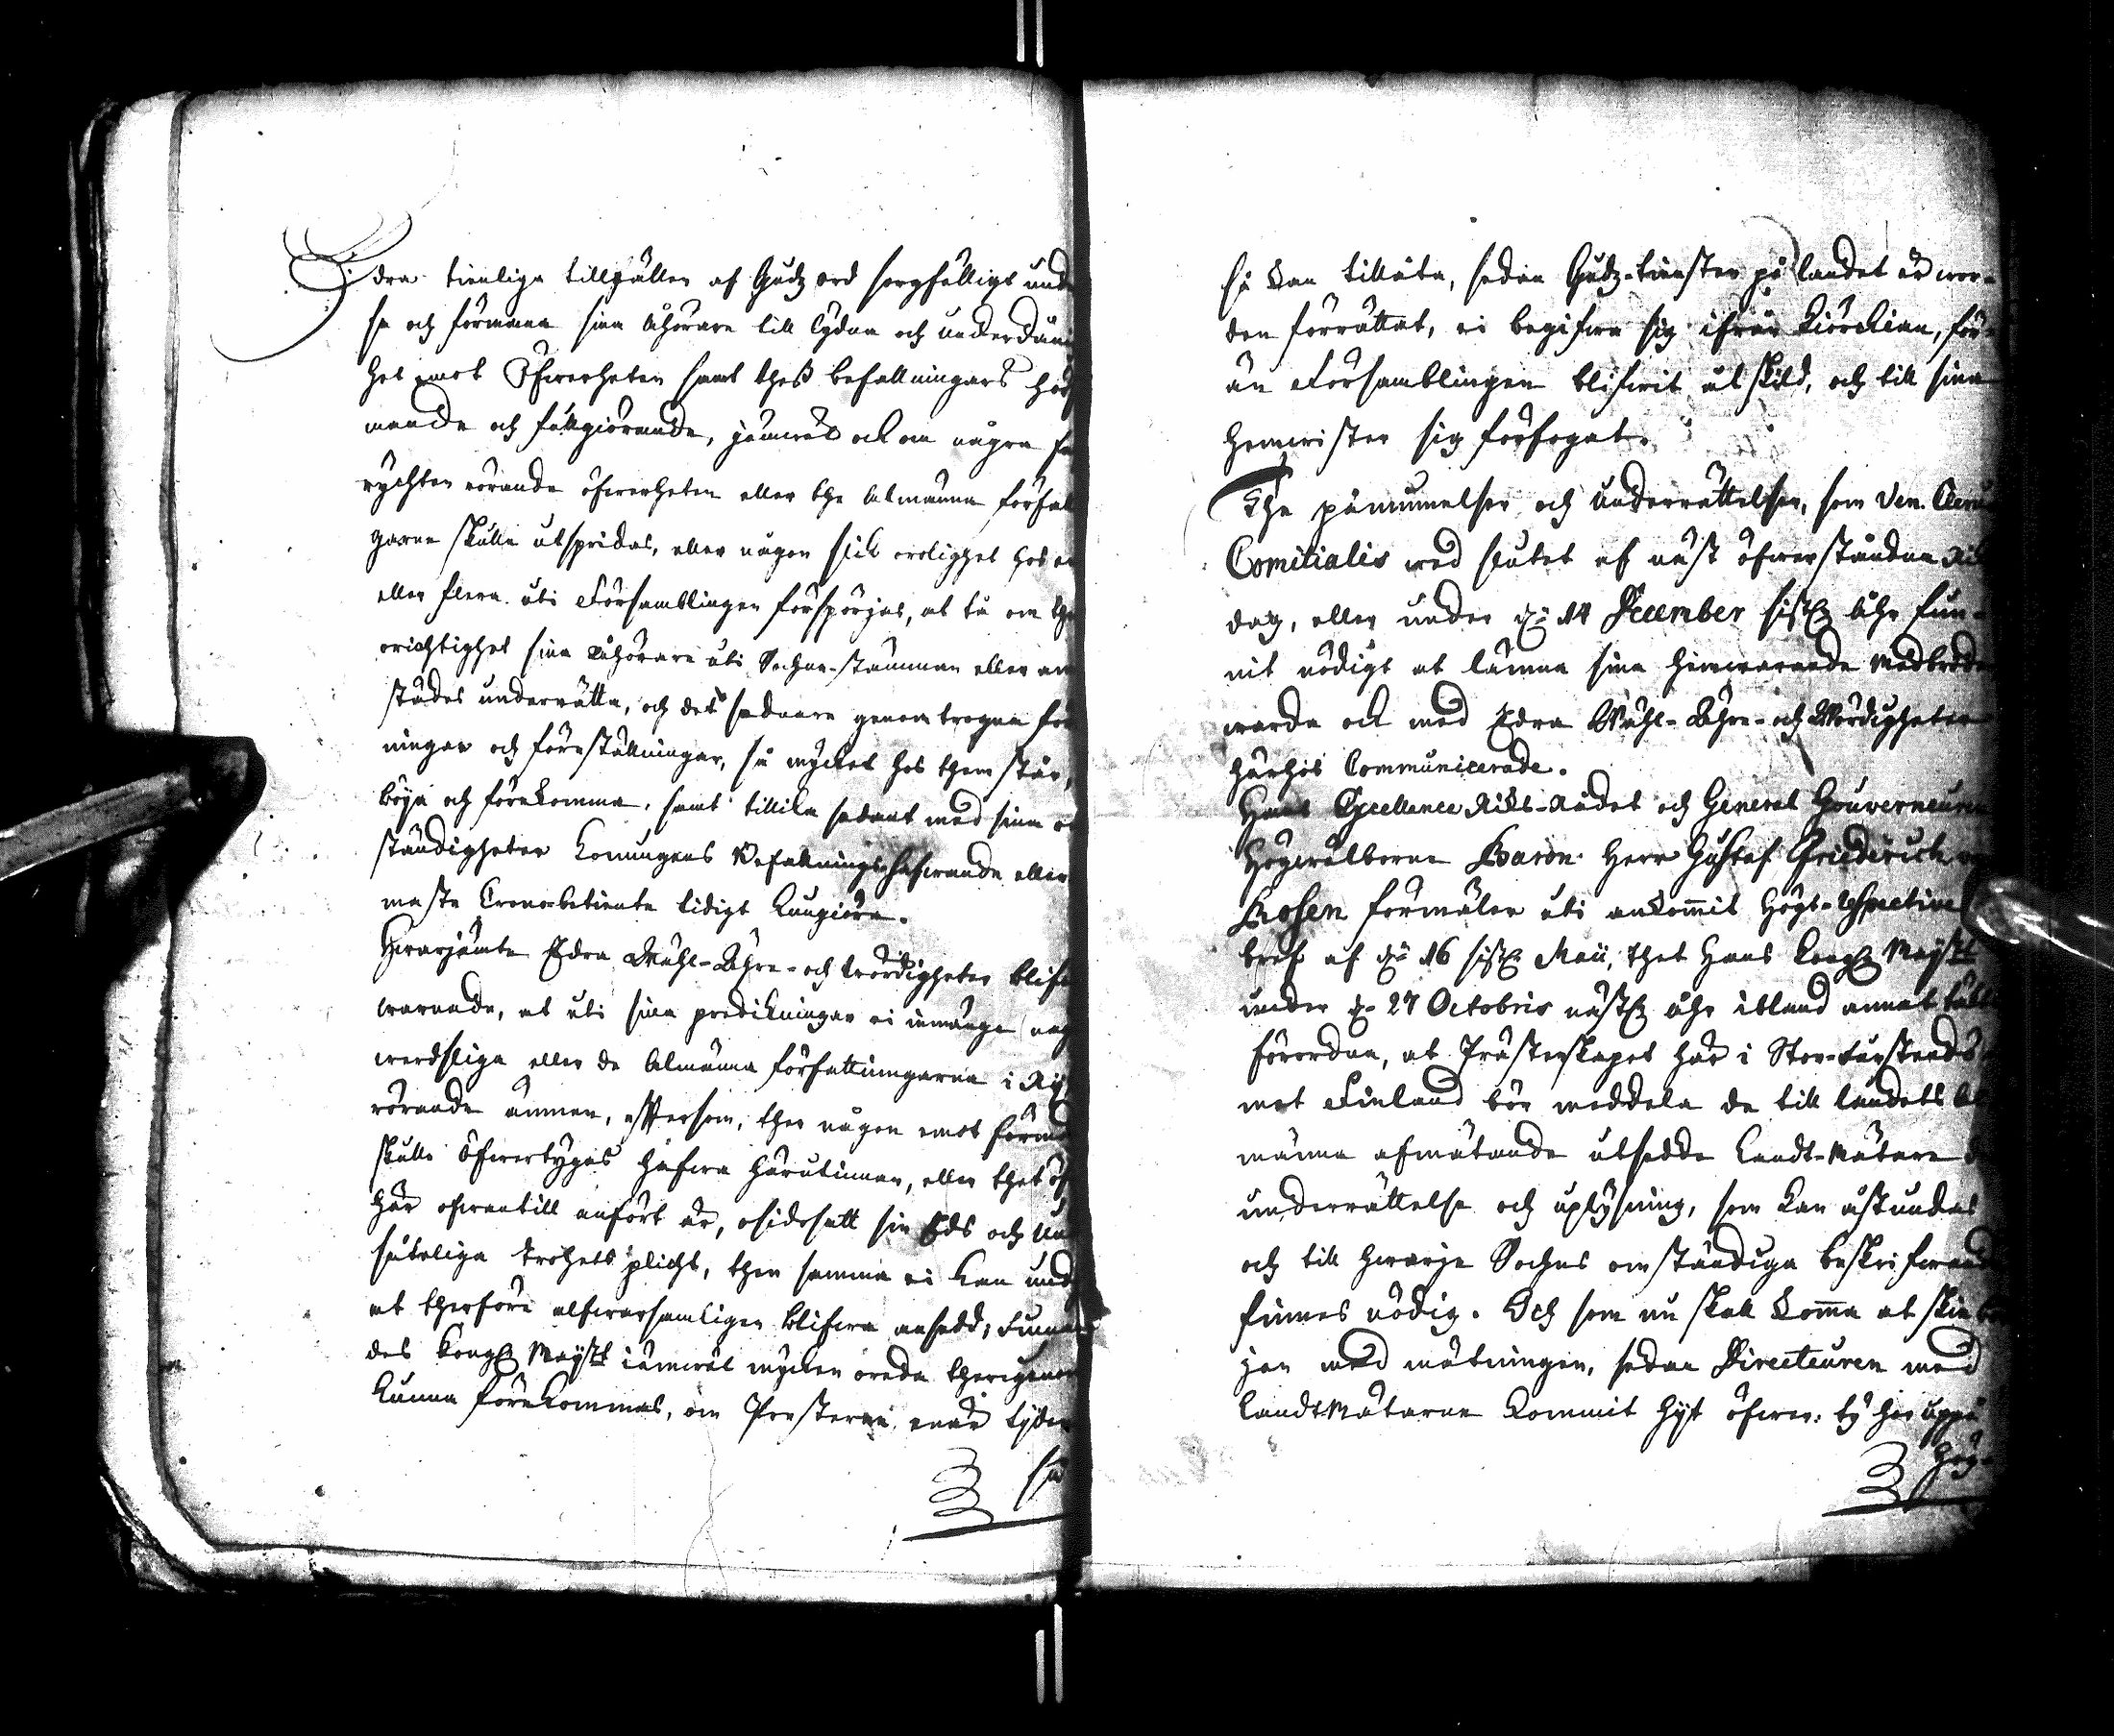 dra tienliga tillfällen af Gudz ord sorgfälligt und
sa och förmana sina åhörare till lydna och underdåni
het emot Öfwerheten samt thess befallningars hör
mande och fullgiörande, jämwäl ock om några fa
rychten rörande öfwerheten eller the almänna förfat
garne skulle utspridas, eller någon slik orolighet hos en
eller flera uti Församblingen förspörjas, at tå om the
orichtighet sina åhörare uti Sochne-stämman eller an
städes underrätta, och det sednare genom trogna för
ningar och föreställningar, så mycket hos them står,
böja och förekomma, samt tillika sådant med sina om
ständigheter Konungens Befallningshafwande eller
maste Cronobetiente tidigt kungiöra.
Hwarjämte Edra Wähl-Ähre- och wördigheter blifw
warnade, at uti sina predikningar ei inmänga någ
werdsliga eller de Almänna författningarna i Rij
rörande ämnen, eftersom, ther någon emot förmo
skulle öfwertygas hafwa härutinnan, eller thet öf
här ofwantill anfört är, åsidosatt sin Eds och Und
såteliga trohets plicht, then samma ei kan und
at therföre alfwarsamligen blifwa ansedd; Finna
des Kongl. Mayst. jämwäl mycken oreda therigenom
kunna förekommas, om Presterne, enär tijden
så
så kan tillåta, sedan Gudz-tiensten på landet är wor-
den förrättat, ei begifwa sig ifrån Kiörckian, för-
än Församblingen blifwit åtskild, och till sina
hemwister sig förfogat.
The påminnelser och underrättelser, som Ven. Cleru
Comitialis wed slutet af näst öfwerståndna Rik
dag, eller under d. 14 December sistl. åhr fun-
nit nödigt at lämna sina hemwarande Medbröde
warda ock med Edra Wähl-Ähre- och Wördigheter
härhos Communicerade.
Hans Excellence Riks-Rådet och General Gouverneuren
Högwälborne Baron Herr Gustaf Friederich v
Rosen förmäler uti ankommit Högt-respective
bref af d. 16 sistl. Maii, thet Hans Kongl. May:tt
under d. 27 Octobris nästl. åhr ibland annat täck
förordna, at Prästerskapet här i Stor-Furstend
met Finland bör meddela de till landets Al
männa afmätande utsedde Landt-Mätare d
underrättelse och uplysning, som kan åstundas
och till hwarje Sochns omständiga beskrifwand
finnes nödig. Och som nu skall komma at skie bör
jan med mätningen, sedan Directeuren med
Landtmätarne kommit hijt öfwer: ty har uppå
Hög-